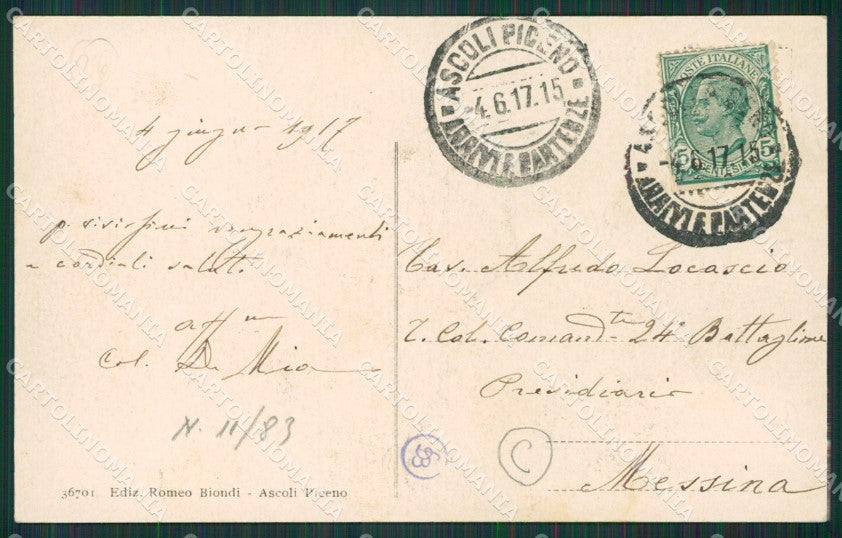 ASCOLI PICENO
-4.6.17.15
ARRIVI E PARTENZE
POSTE ITALIANE
5 CENTESIMI 5
-4.6.17.15
ARRIVI E PARTENZE
4 giugno 1917
p. vivissimi ringraziamenti
e cordiali saluti.
aff.mo
Col. De Mia
Cav. Alfredo Locascio
T. Col. Comandte 24° Battaglione
Presidiario
Messina
N. 11/83
C
36701 Ediz. Romeo Biondi - Ascoli Piceno
CARTOLINOMANIA